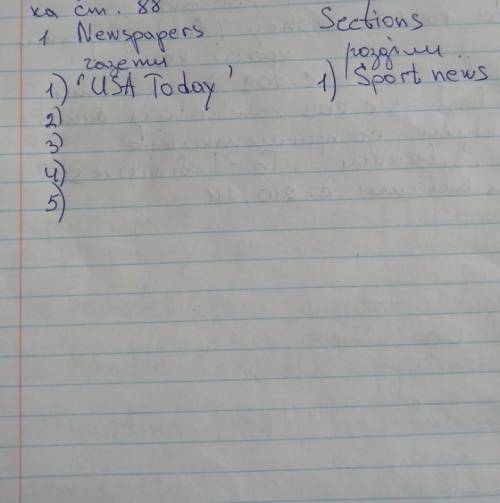 ка ст. 88
1. Newspapers Sections
газети розділи
1) 'USA Today' 1) Sport news
2)
3)
4)
5)